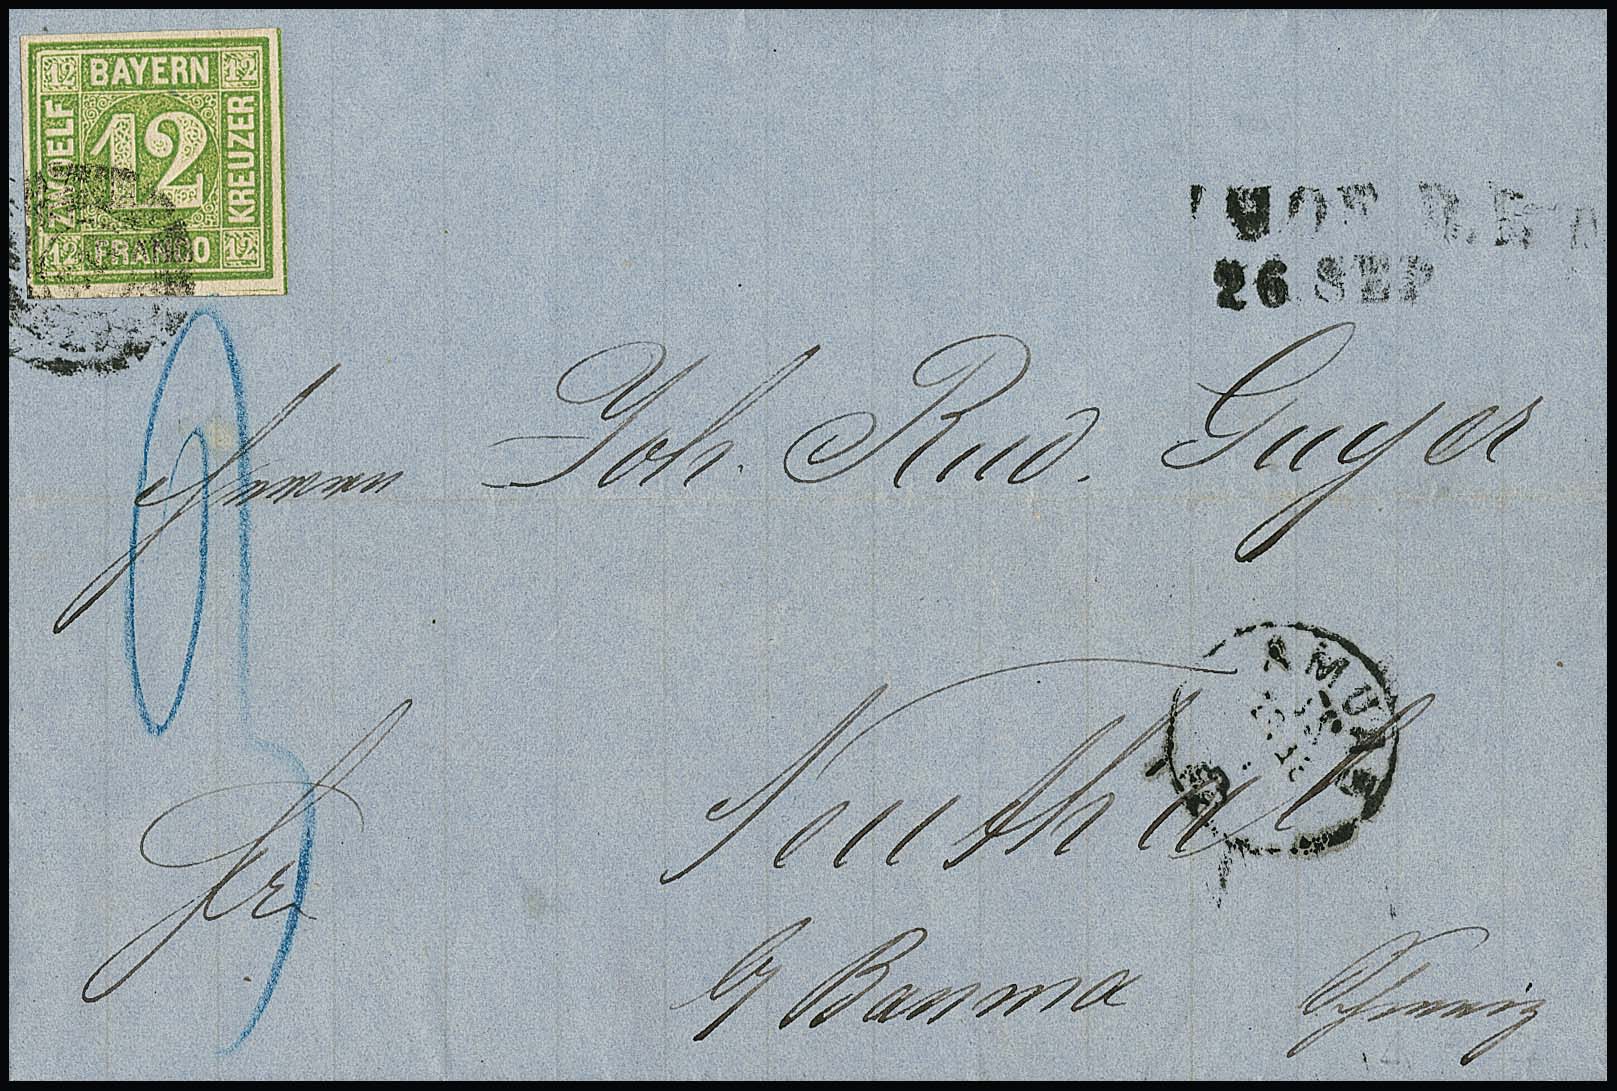 12 BAYERN 12
ZWOELF 12 KREUZER
12 FRANCO 12
26 SEP
Herrn Joh. Rud. Guyer
Neuthal
fr
b/ Bauma Schweiz